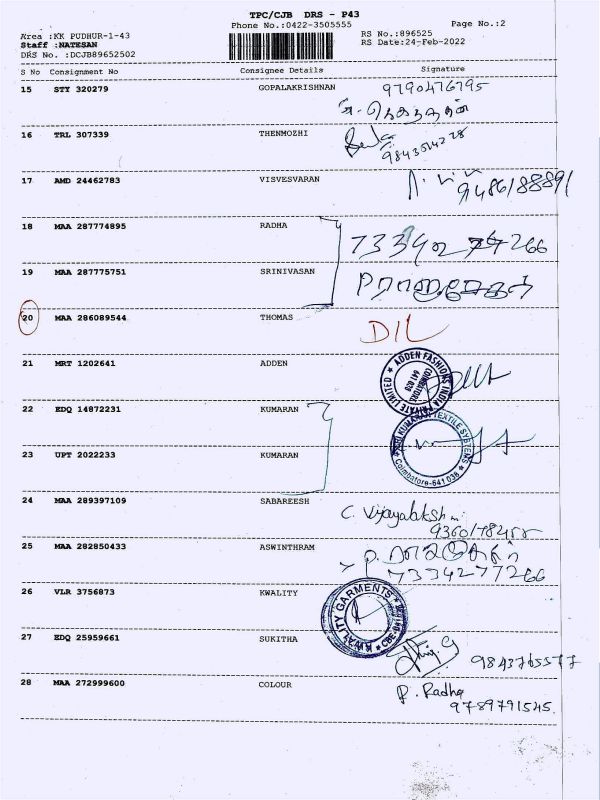 TPC/CJB DRS - P43
Phone No.:0422-3505555
Page No.:2
Area :KK PUDHUR-1-43
Staff :NATESAN
DRS No. :DCJB89652502
RS No.:896525
RS Date:24-Feb-2022
S No Consignment No Consignee Details Signature
15 STY 320279 GOPALAKRISHNAN 9790476795
16 TRL 307339 THENMOZHI
17 AMD 24462783 VISVESVARAN 9486188891
18 MAA 287774895 RADHA
19 MAA 287775751 SRINIVASAN
20 MAA 286089544 THOMAS DIL
21 MRT 1202641 ADDEN
ADDEN FASHIONS INDIA PRIVATE LIMITED
COIMBATORE
641 038
22 EDQ 14872231 KUMARAN
SRI KUMARAN TEXTILE SYSTEMS
Coimbatore-641 038
23 UPT 2022233 KUMARAN
24 MAA 289397109 SABAREESH C. Vijayalakshmi
25 MAA 282850433 ASWINTHRAM
7334277266
26 VLR 3756873 KWALITY
KWALITY GARMENTS
27 EDQ 25959661 SUKITHA
28 MAA 272999600 COLOUR P. Radha
9789791545